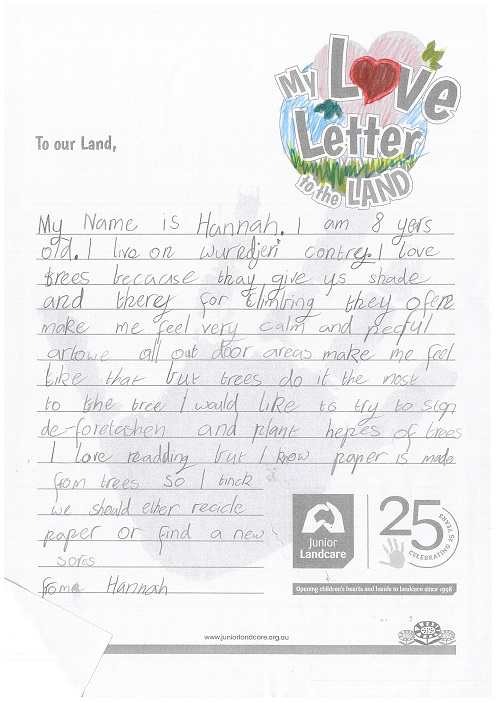 My Love
Letter
to the LAND
To our Land,
My Name is Hannah. I am 8 yers
old. I live on wuredjeri contrey. I love
trees because thay give us shade
and therey for climbing they ofen
make me feel very calm and pecful
artowe all out door areas make me feel
like that but trees do it the most
to the tree I would like to try to stop
de-foretashen and plant hepes of trees
I love readding but I know paper is made
from trees so I thinck
we should ether recicle
paper or find a new
sorss
from Hannah
Junior
Landcare
25
CELEBRATING 25 YEARS
Opening children's hearts and hands to landcare since 1998
www.juniorlandcare.org.au